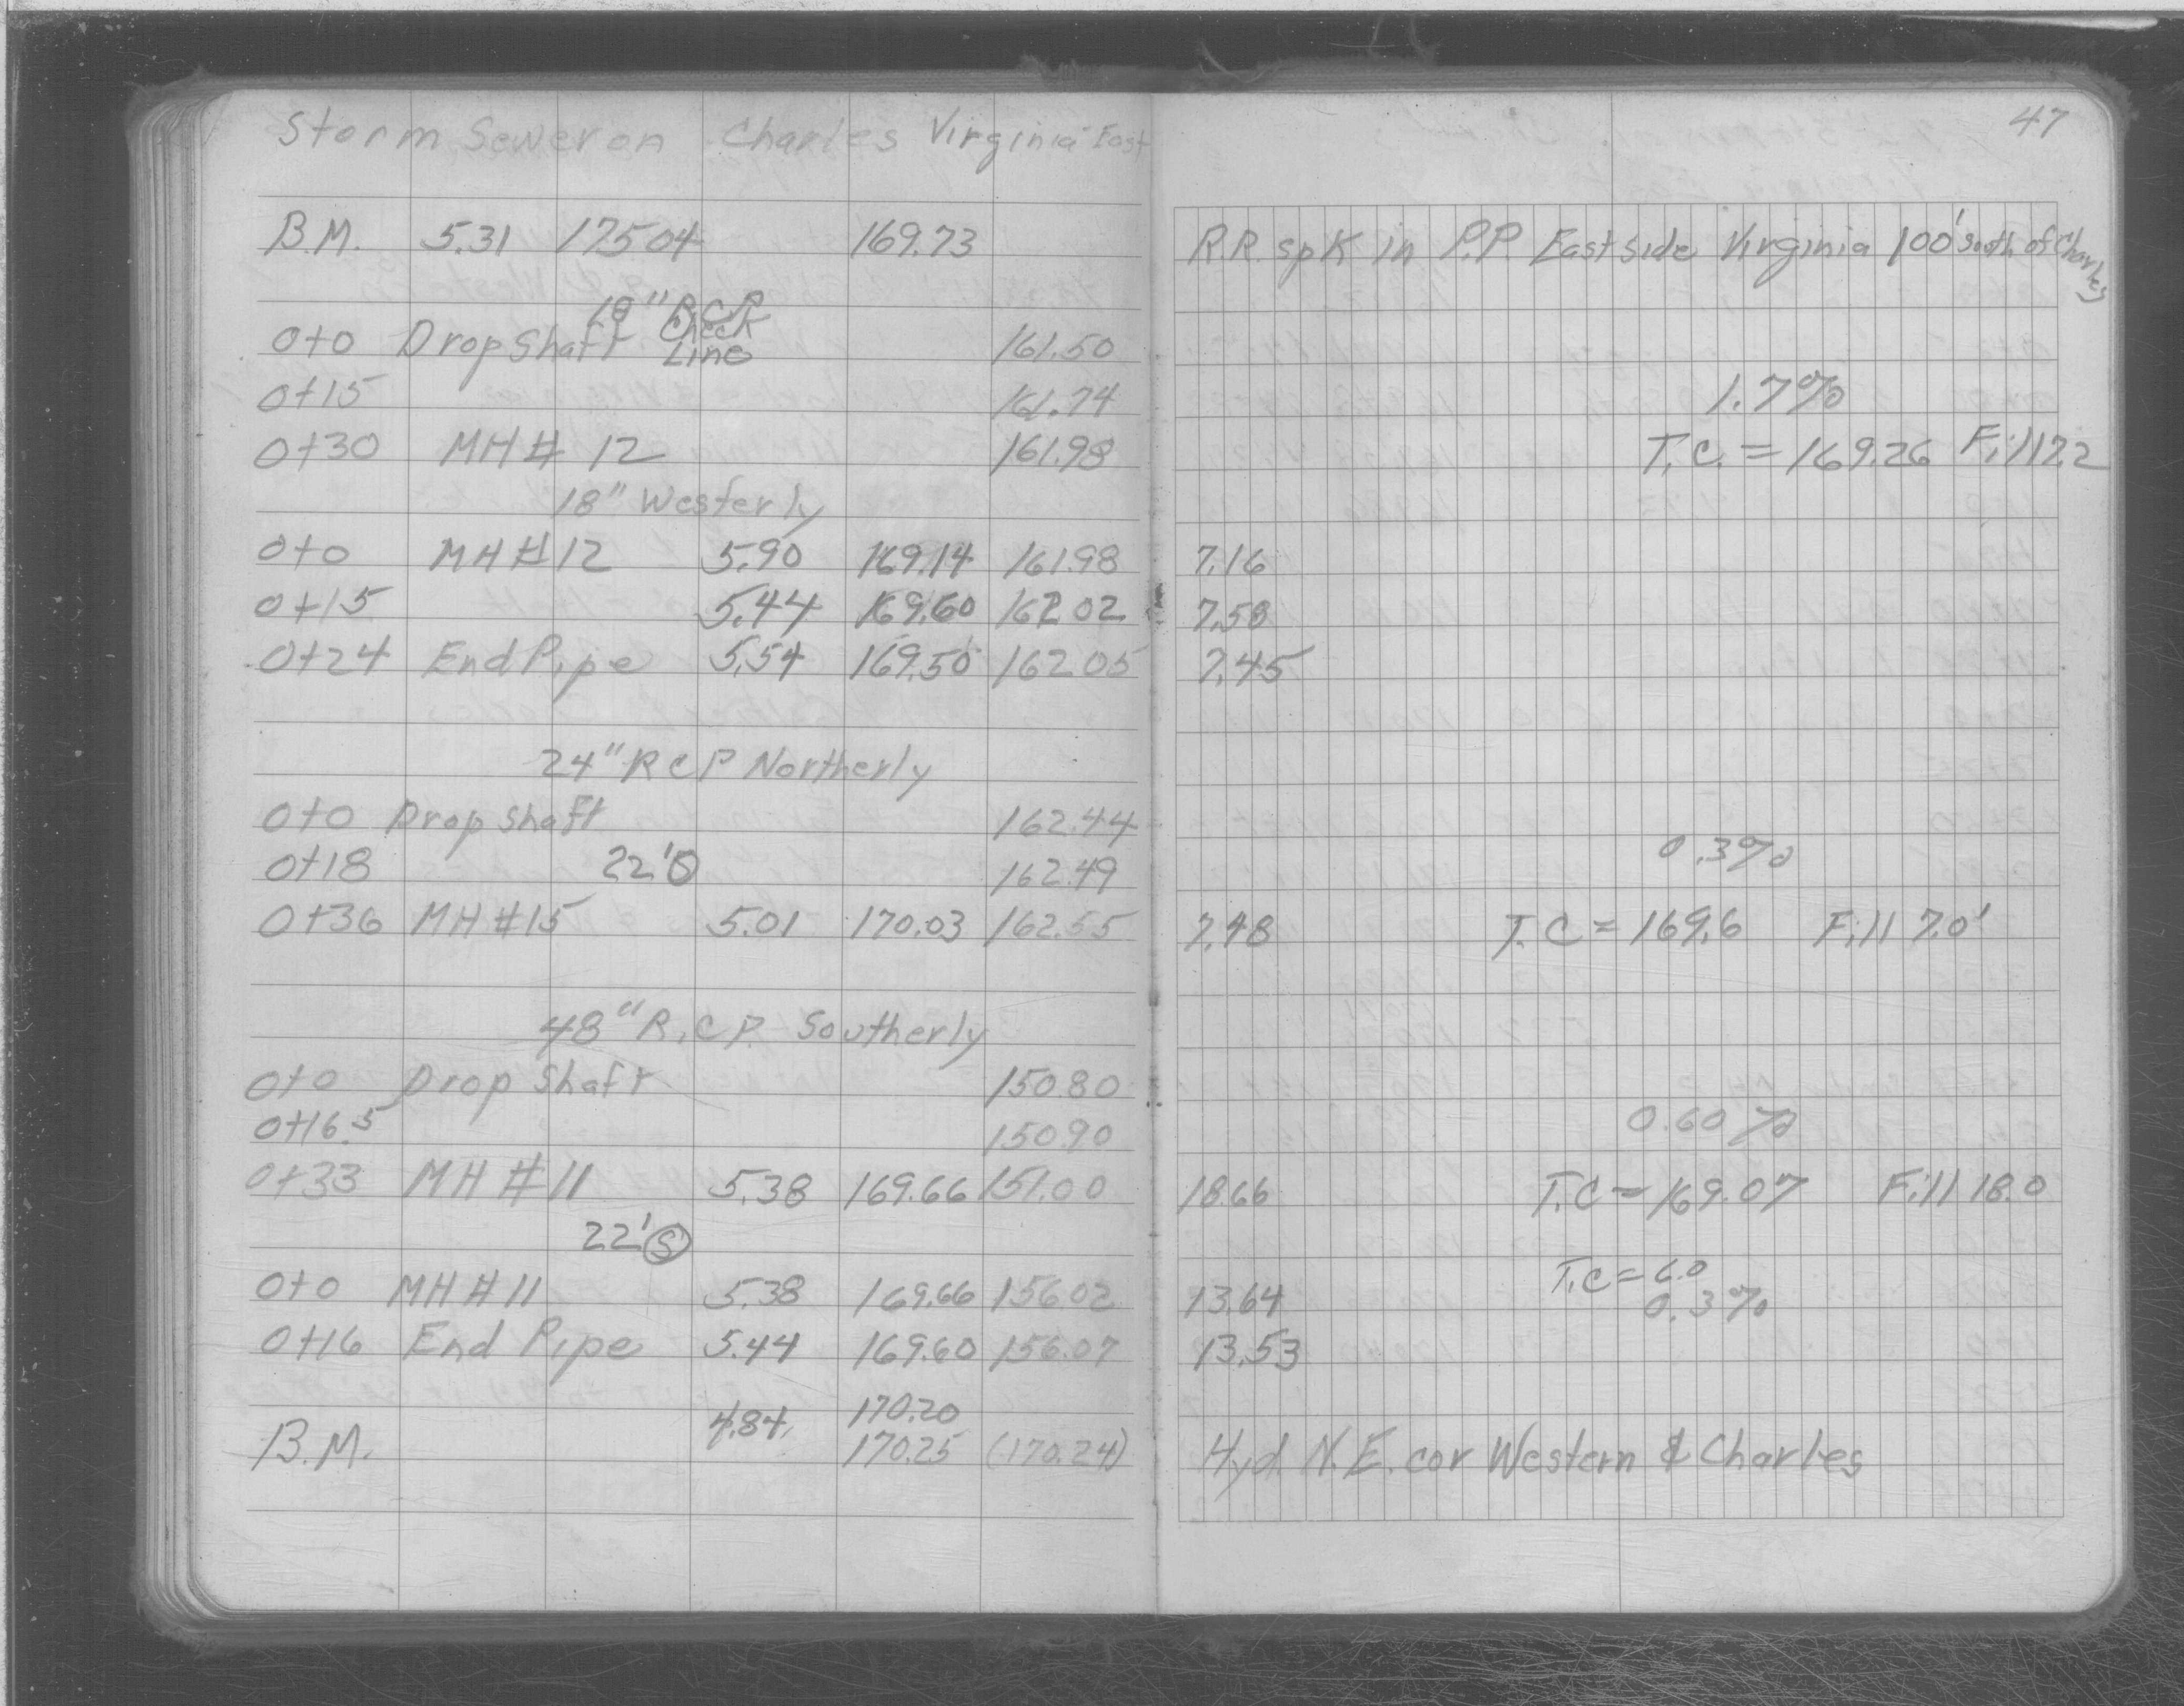 47
Storm Sewer on Charles Virginia East
B.M. 5.31 175.04 169.73 R.R. spk in P.P. East side Virginia 100' south of Charles
18" R.C.P.
0+0 Drop Shaft Check Line 161.50
0+15 161.74 1.7%
0+30 MH # 12 161.98 T.C. = 169.26 Fill 7.2
18" Westerly
0+0 MH # 12 5.90 169.14 161.98 7.16
0+15 5.44 169.60 162.02 7.58
0+24 End Pipe 5.54 169.50 162.05 7.45
24" R C P Northerly
0+0 Drop Shaft 162.44
0+18 22' 162.49 0.3%
0+36 MH #15 5.01 170.03 162.55 7.48 T.C = 169.6 Fill 7.0'
48" R.C.P. Southerly
0+0 Drop Shaft 150.80
0+16.5 150.90 0.60%
0+33 MH # 11 5.38 169.66 151.00 18.66 T.C = 169.07 Fill 18.0
22' S
0+0 MH # 11 5.38 169.66 156.02 13.64 T.C = 6.0 0.3%
0+16 End Pipe 5.44 169.60 156.07 13.53
4.84 170.20
B.M. 170.25 (170.24) Hyd. N.E. cor Western & Charles